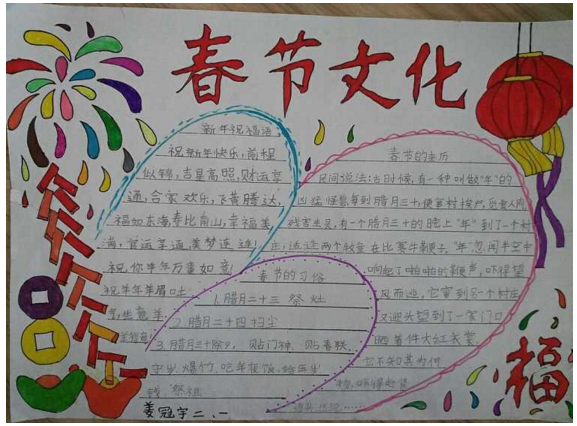 春节文化
新年祝福语
祝新年快乐,前程
似锦,吉星高照,财运亨
通,合家欢乐,飞黄腾达,
福如东海,寿比南山,幸福美
满,官运亨通,美梦连连!
祝你羊年万事如意!
祝羊年羊眉吐
春节的来历
民间说法:古时候,有一种叫做"年"的
凶猛怪兽,每到腊月三十,便窜村挨户,觅食人肉,
残害生灵,有一个腊月三十的晚上"年"到了一个村
庄,适逢两个牧童在比赛牛鞭子。"年"忽闻半空中
响起了啪啪的鞭声,吓得望
风而逃。它窜到另一个村庄
又迎头望到了一家门口
晒着件大红衣裳,
它不知其为何
物,吓得
春节的习俗
1.腊月二十三 祭灶
2.腊月二十四 扫尘
3.腊月三十除夕, 贴门神,贴春联,
守岁,爆竹,吃年夜饭,给压岁
钱,祭祖
福
姜冠宇二、一